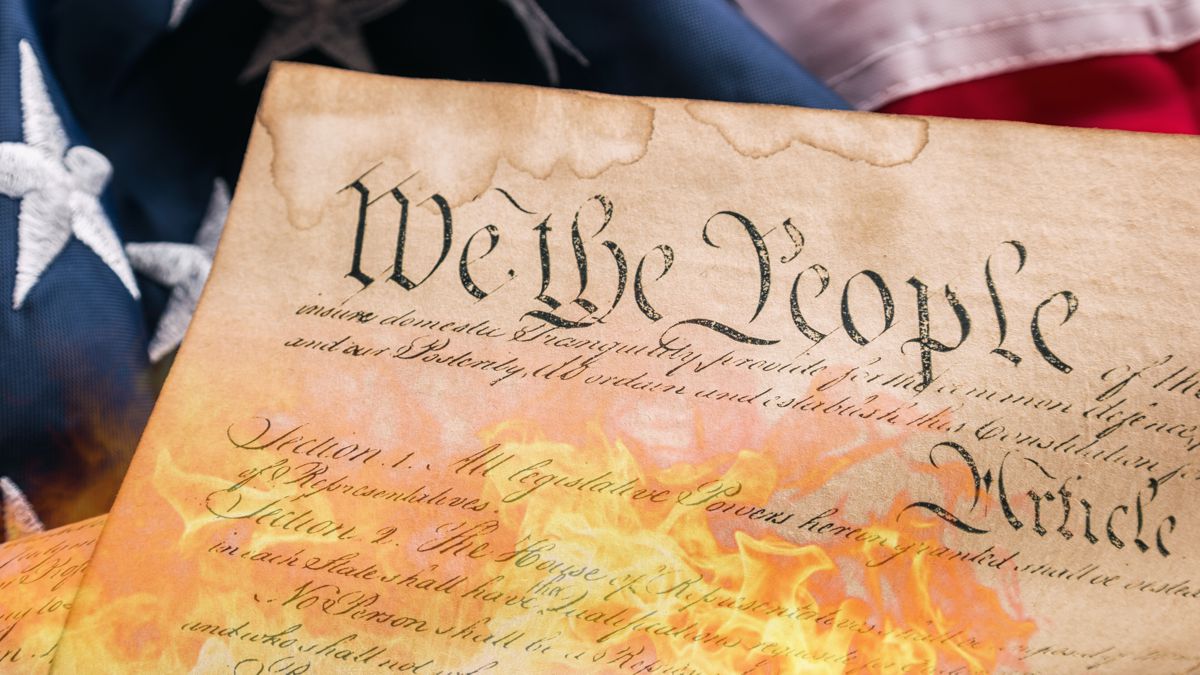 We the People
of the
insure domestic Tranquility, provide for the common defence,
and our Posterity, do ordain and establish this Constitution for
Article
Section. 1. All legislative Powers herein granted shall be
of Representatives.
Section. 2. The House of Representatives shall be
in each State shall have the Qualifications requisite for
No Person shall be a
and who shall not